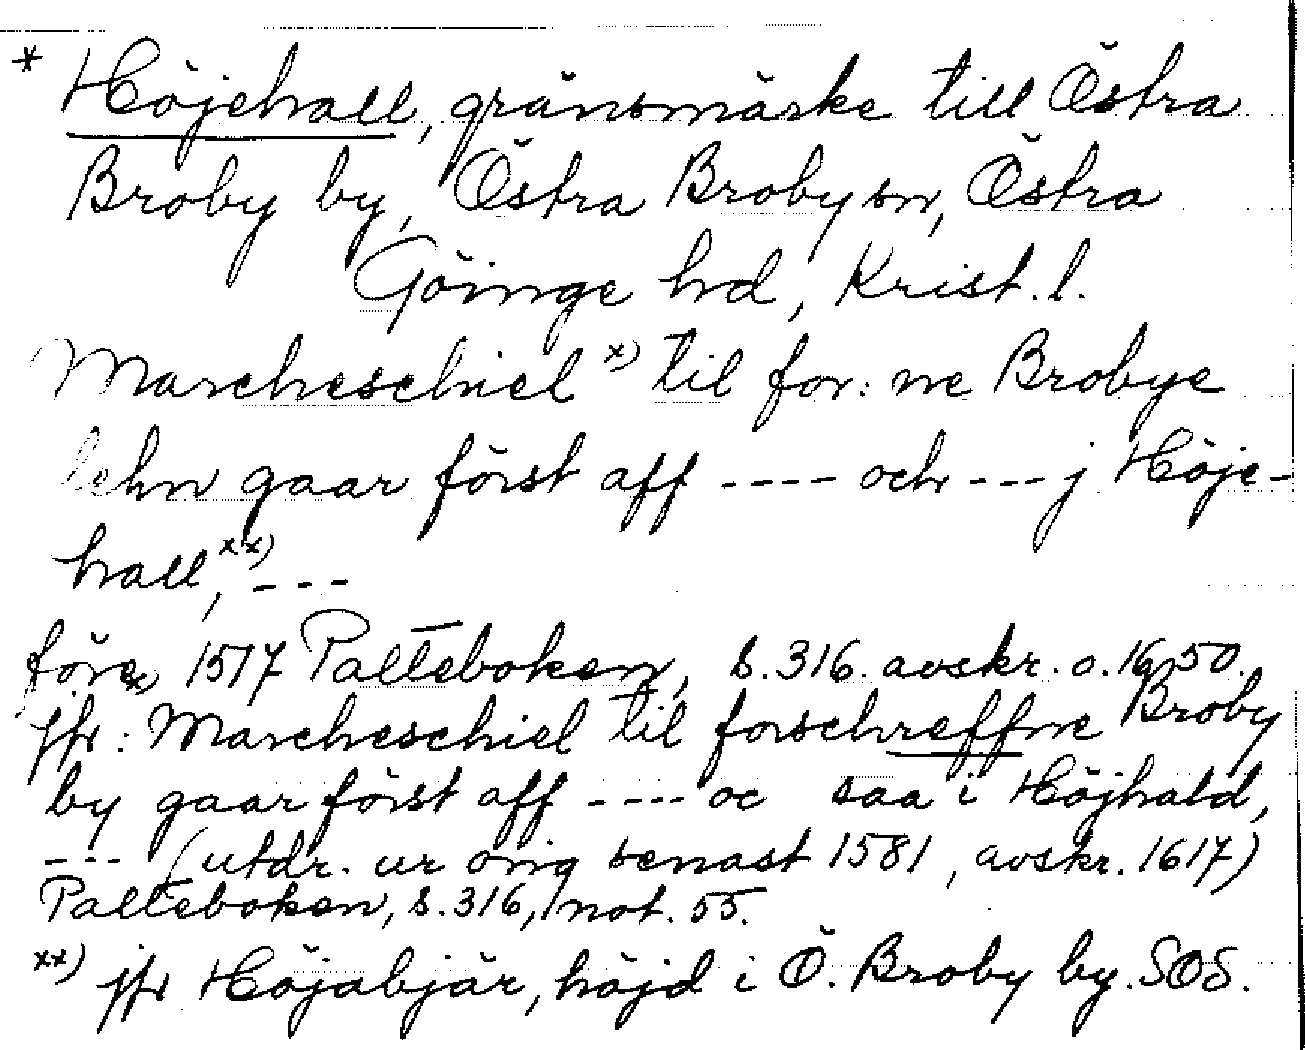 * Höjehall, gränsmärke till Östra
Broby by, Östra Broby sn, Östra
Göinge hd, Krist. l.
Marcheschiel x) til for: ne Brobye
lehn gaar först aff ---- och --- j Höje-
hall, xx) ---
före 1517 Palteboken, s. 316. avskr. o. 1650.
x) jfr: Marcheschiel til forschreffne Broby
by gaar först aff ---- oc saa i Höjhald,
--- (utdr. ur orig senast 1581, avskr. 1617)
Palteboken, s. 316, not. 55.
xx) jfr Höjabjär, höjd i Ö. Broby by. SOS.